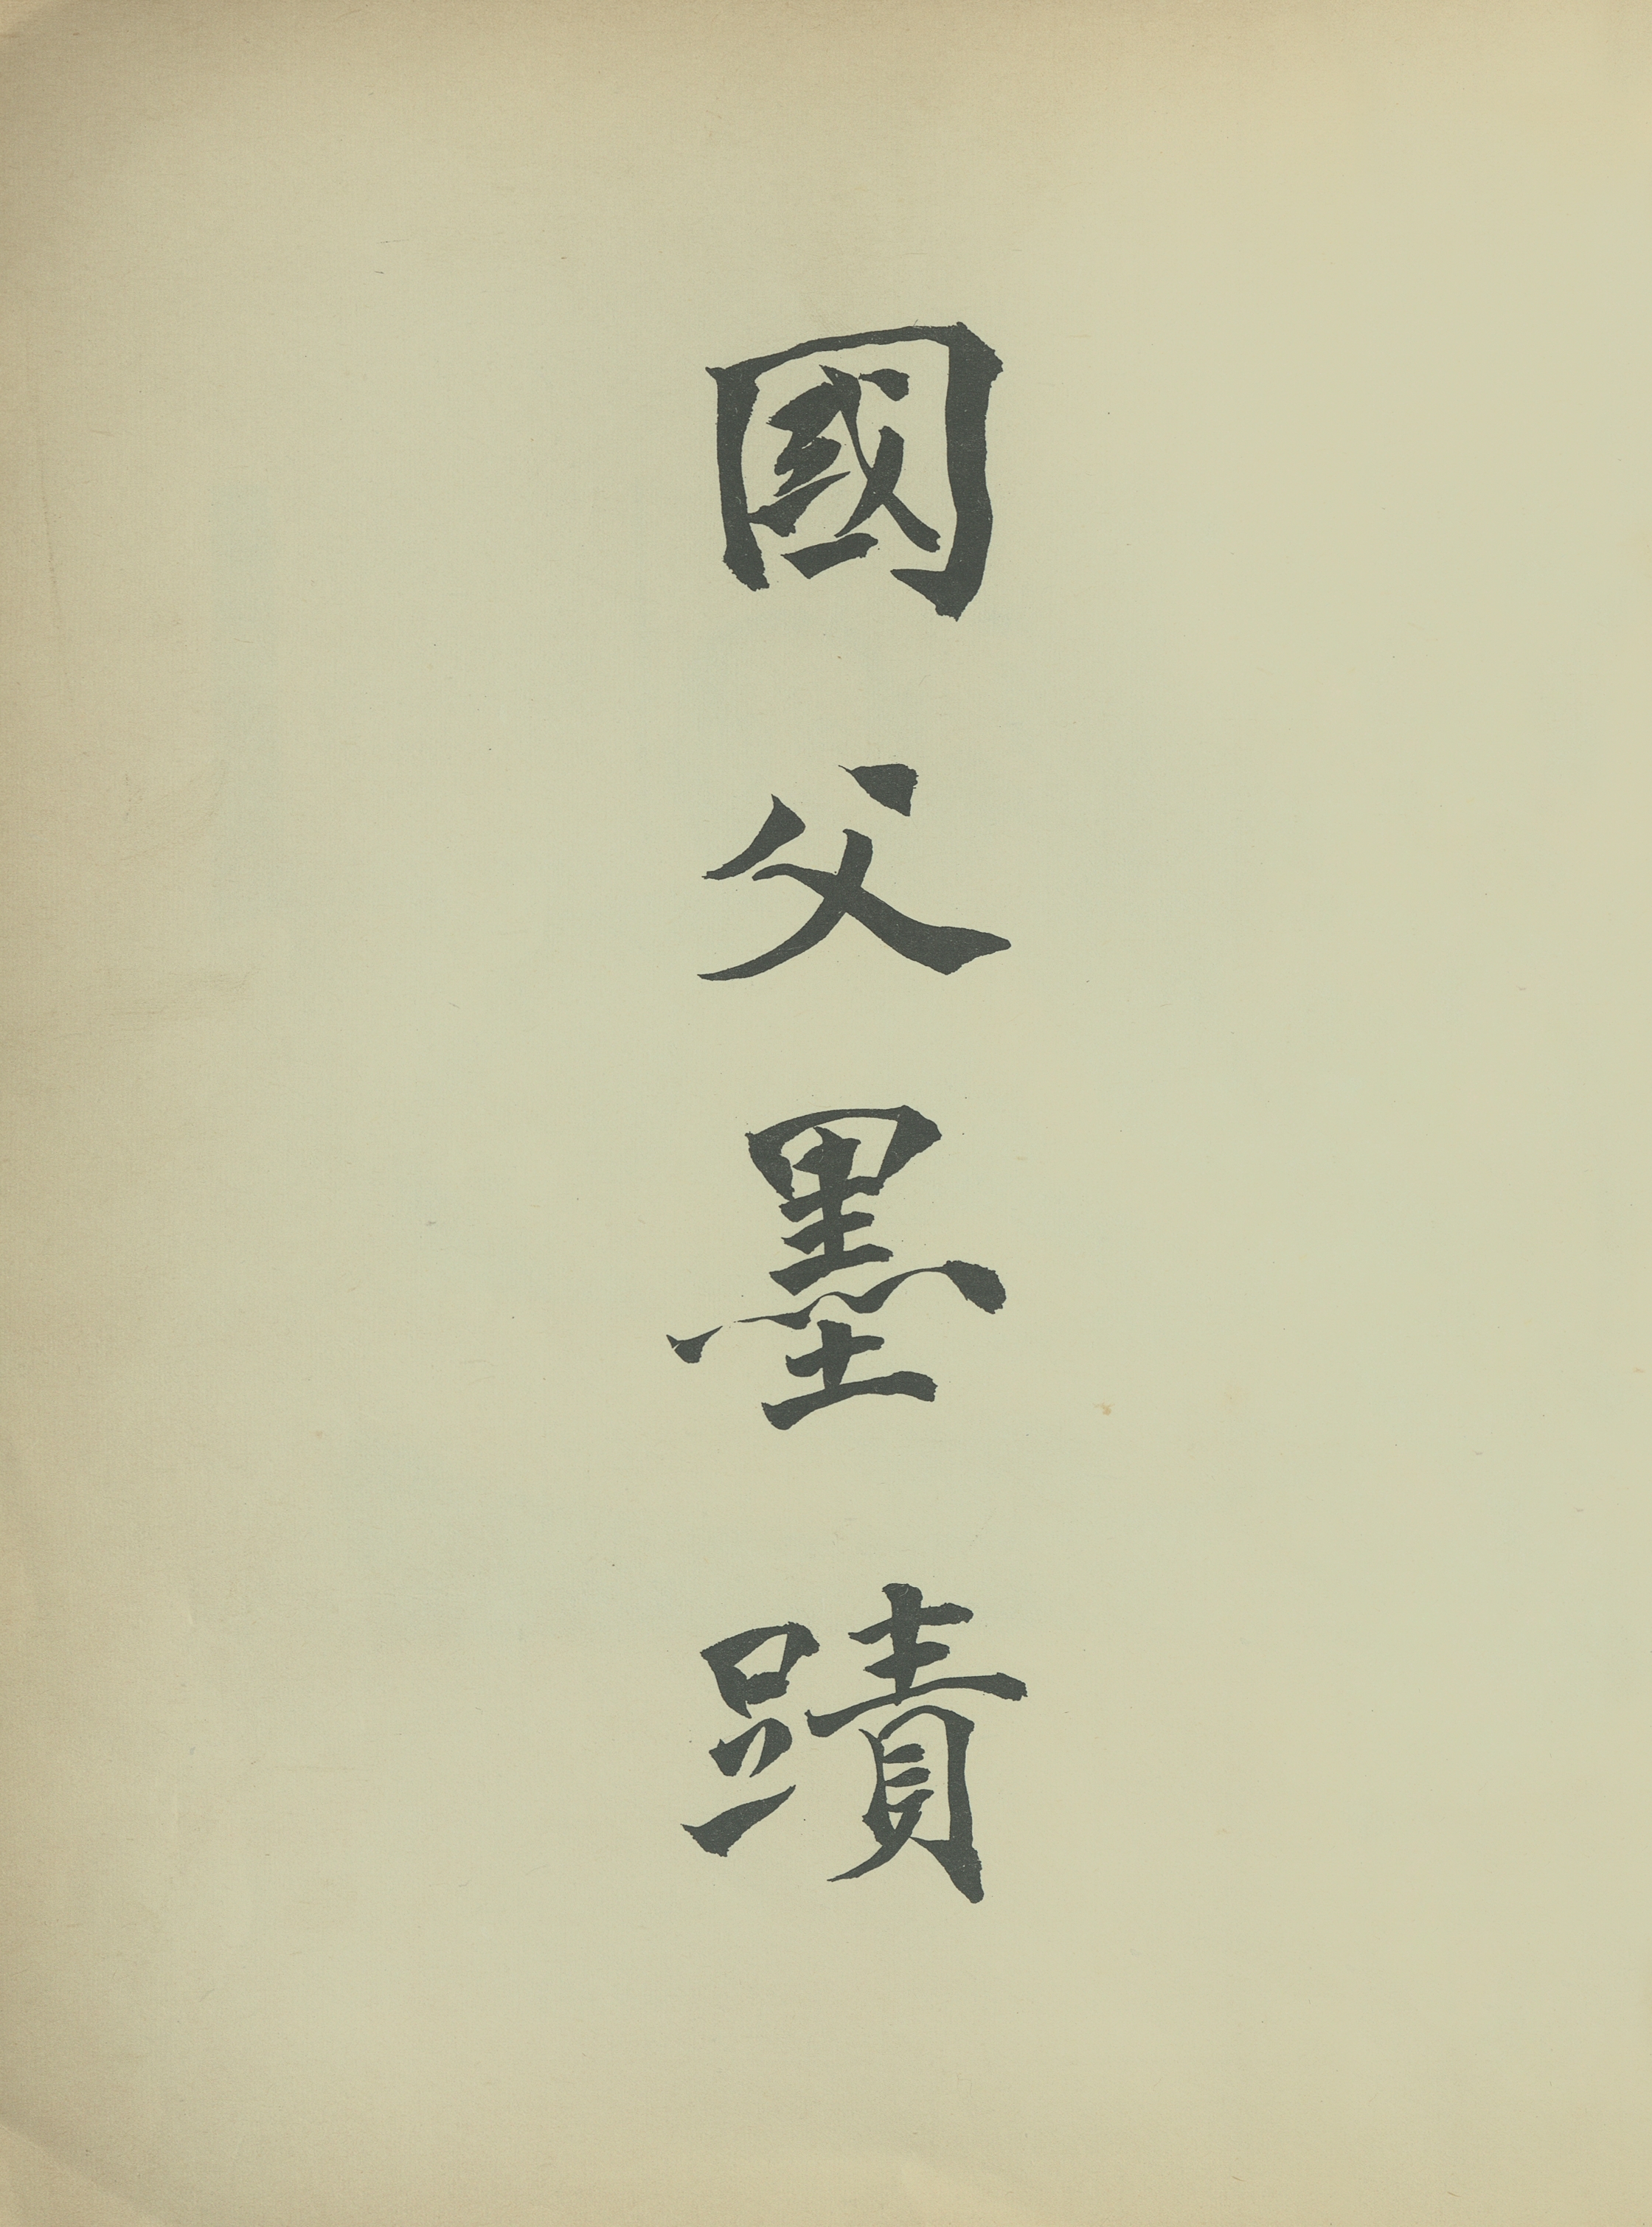 國父墨蹟